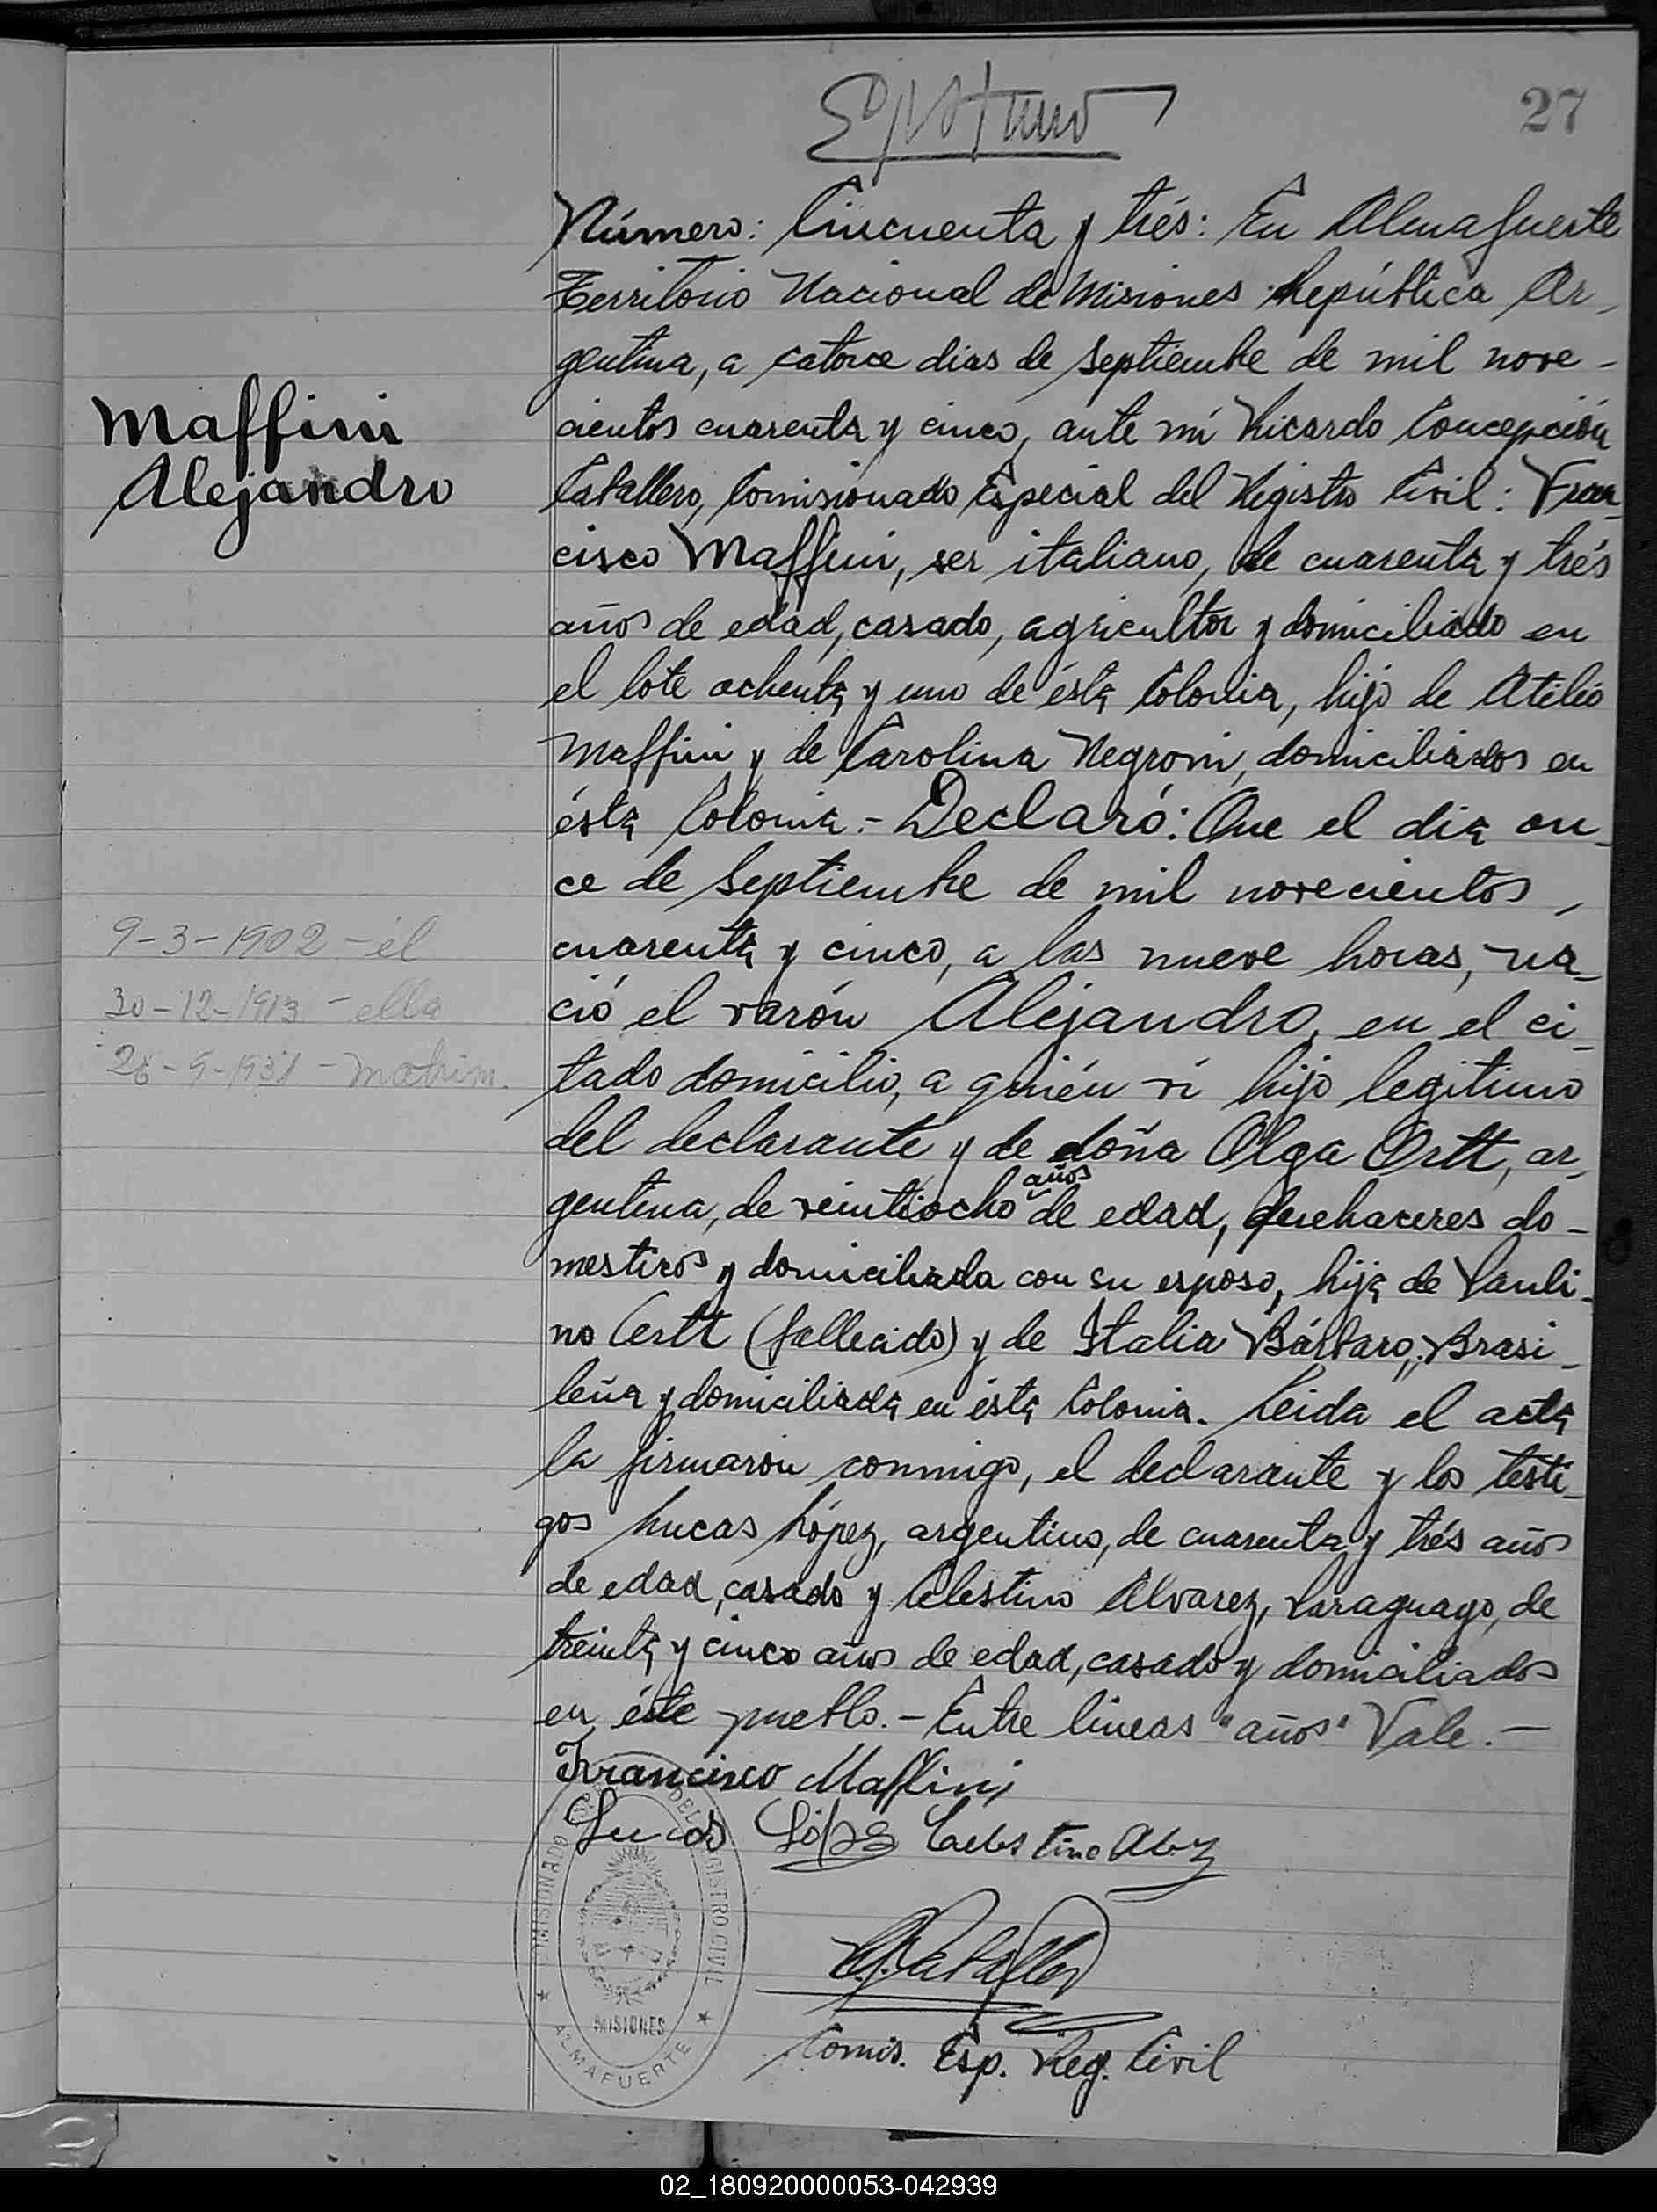 27
Número: Cincuenta y trés: En Almafuerte
Territorio Nacional de Misiones República Ar-
gentina, a catorce dias de Septiembre de mil nove-
cientos cuarenta y cinco, ante mi Ricardo Concepción
Caballero, Comisionado Especial del Registro Civil: Fran-
cisco Maffini, ser italiano, de cuarenta y trés
años de edad, casado, agricultor y domiciliado en
el lote ochenta y uno de ésta Colonia, hijo de Atilio
Maffini y de Carolina Negroni, domiciliados en
ésta Colonia.- Declaró: Que el dia on-
ce de Septiembre de mil novecientos
cuarenta y cinco, a las nueve horas, na-
ció el varón Alejandro, en el ci-
tado domicilio, a quién vi hijo legitimo
del declarante y de doña Olga Ortt, ar-
gentina, de veintiocho años de edad, quehaceres do-
mesticos y domiciliada con su esposo, hija de Pauli-
no Ortt (fallecido) y de Italia Bárbaro, Brasi-
leña y domiciliada en ésta Colonia. Leida el acta
la firmaron conmigo, el declarante y los testi-
gos Lucas López, argentino, de cuarenta y trés años
de edad, casado y Celestino Alvarez, Paraguayo, de
treinta y cinco años de edad, casado y domiciliados
en éste pueblo.- Entre lineas "años" Vale.-
Maffini
Alejandro
9-3-1902 - él
30-12-1913 - ella
26-9-1931 - matrim.
Francisco Maffini
Lucas López Celestino Alvz
Caballero
Comis. Esp. Reg. Civil
COMISIONADO DEL REGISTRO CIVIL
MISIONES
ALMAFUERTE
02_180920000053-042939